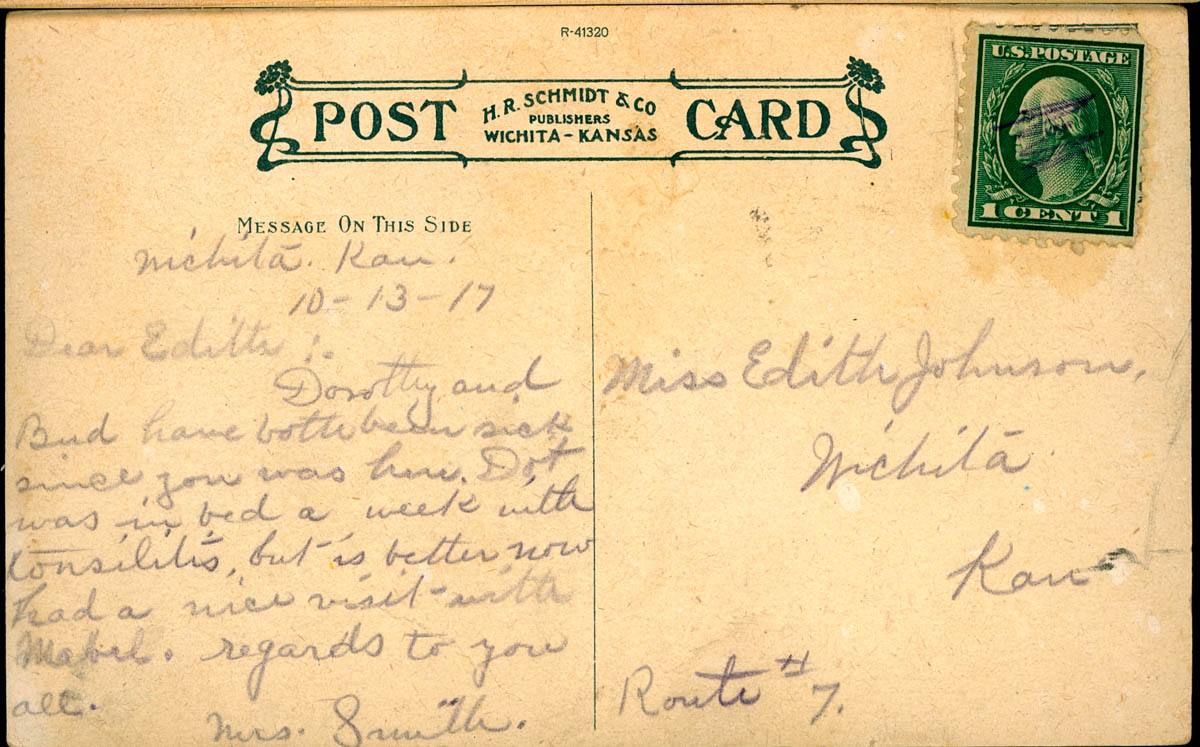 R-41320
POST H.R. SCHMIDT & CO CARD
PUBLISHERS
WICHITA - KANSAS
U.S. POSTAGE
1 CENT 1
MESSAGE ON THIS SIDE
Wichita. Kan.
10-13-17
Dear Edith:.
Dorothy and
Bud have both been sick
since you was here. Dot
was in bed a week with
tonsilitis, but is better now
had a nice visit with
Mabel. regards to you
all.
Mrs. Smith.
Miss Edith Johnson,
Wichita
Kan
Route # 7.